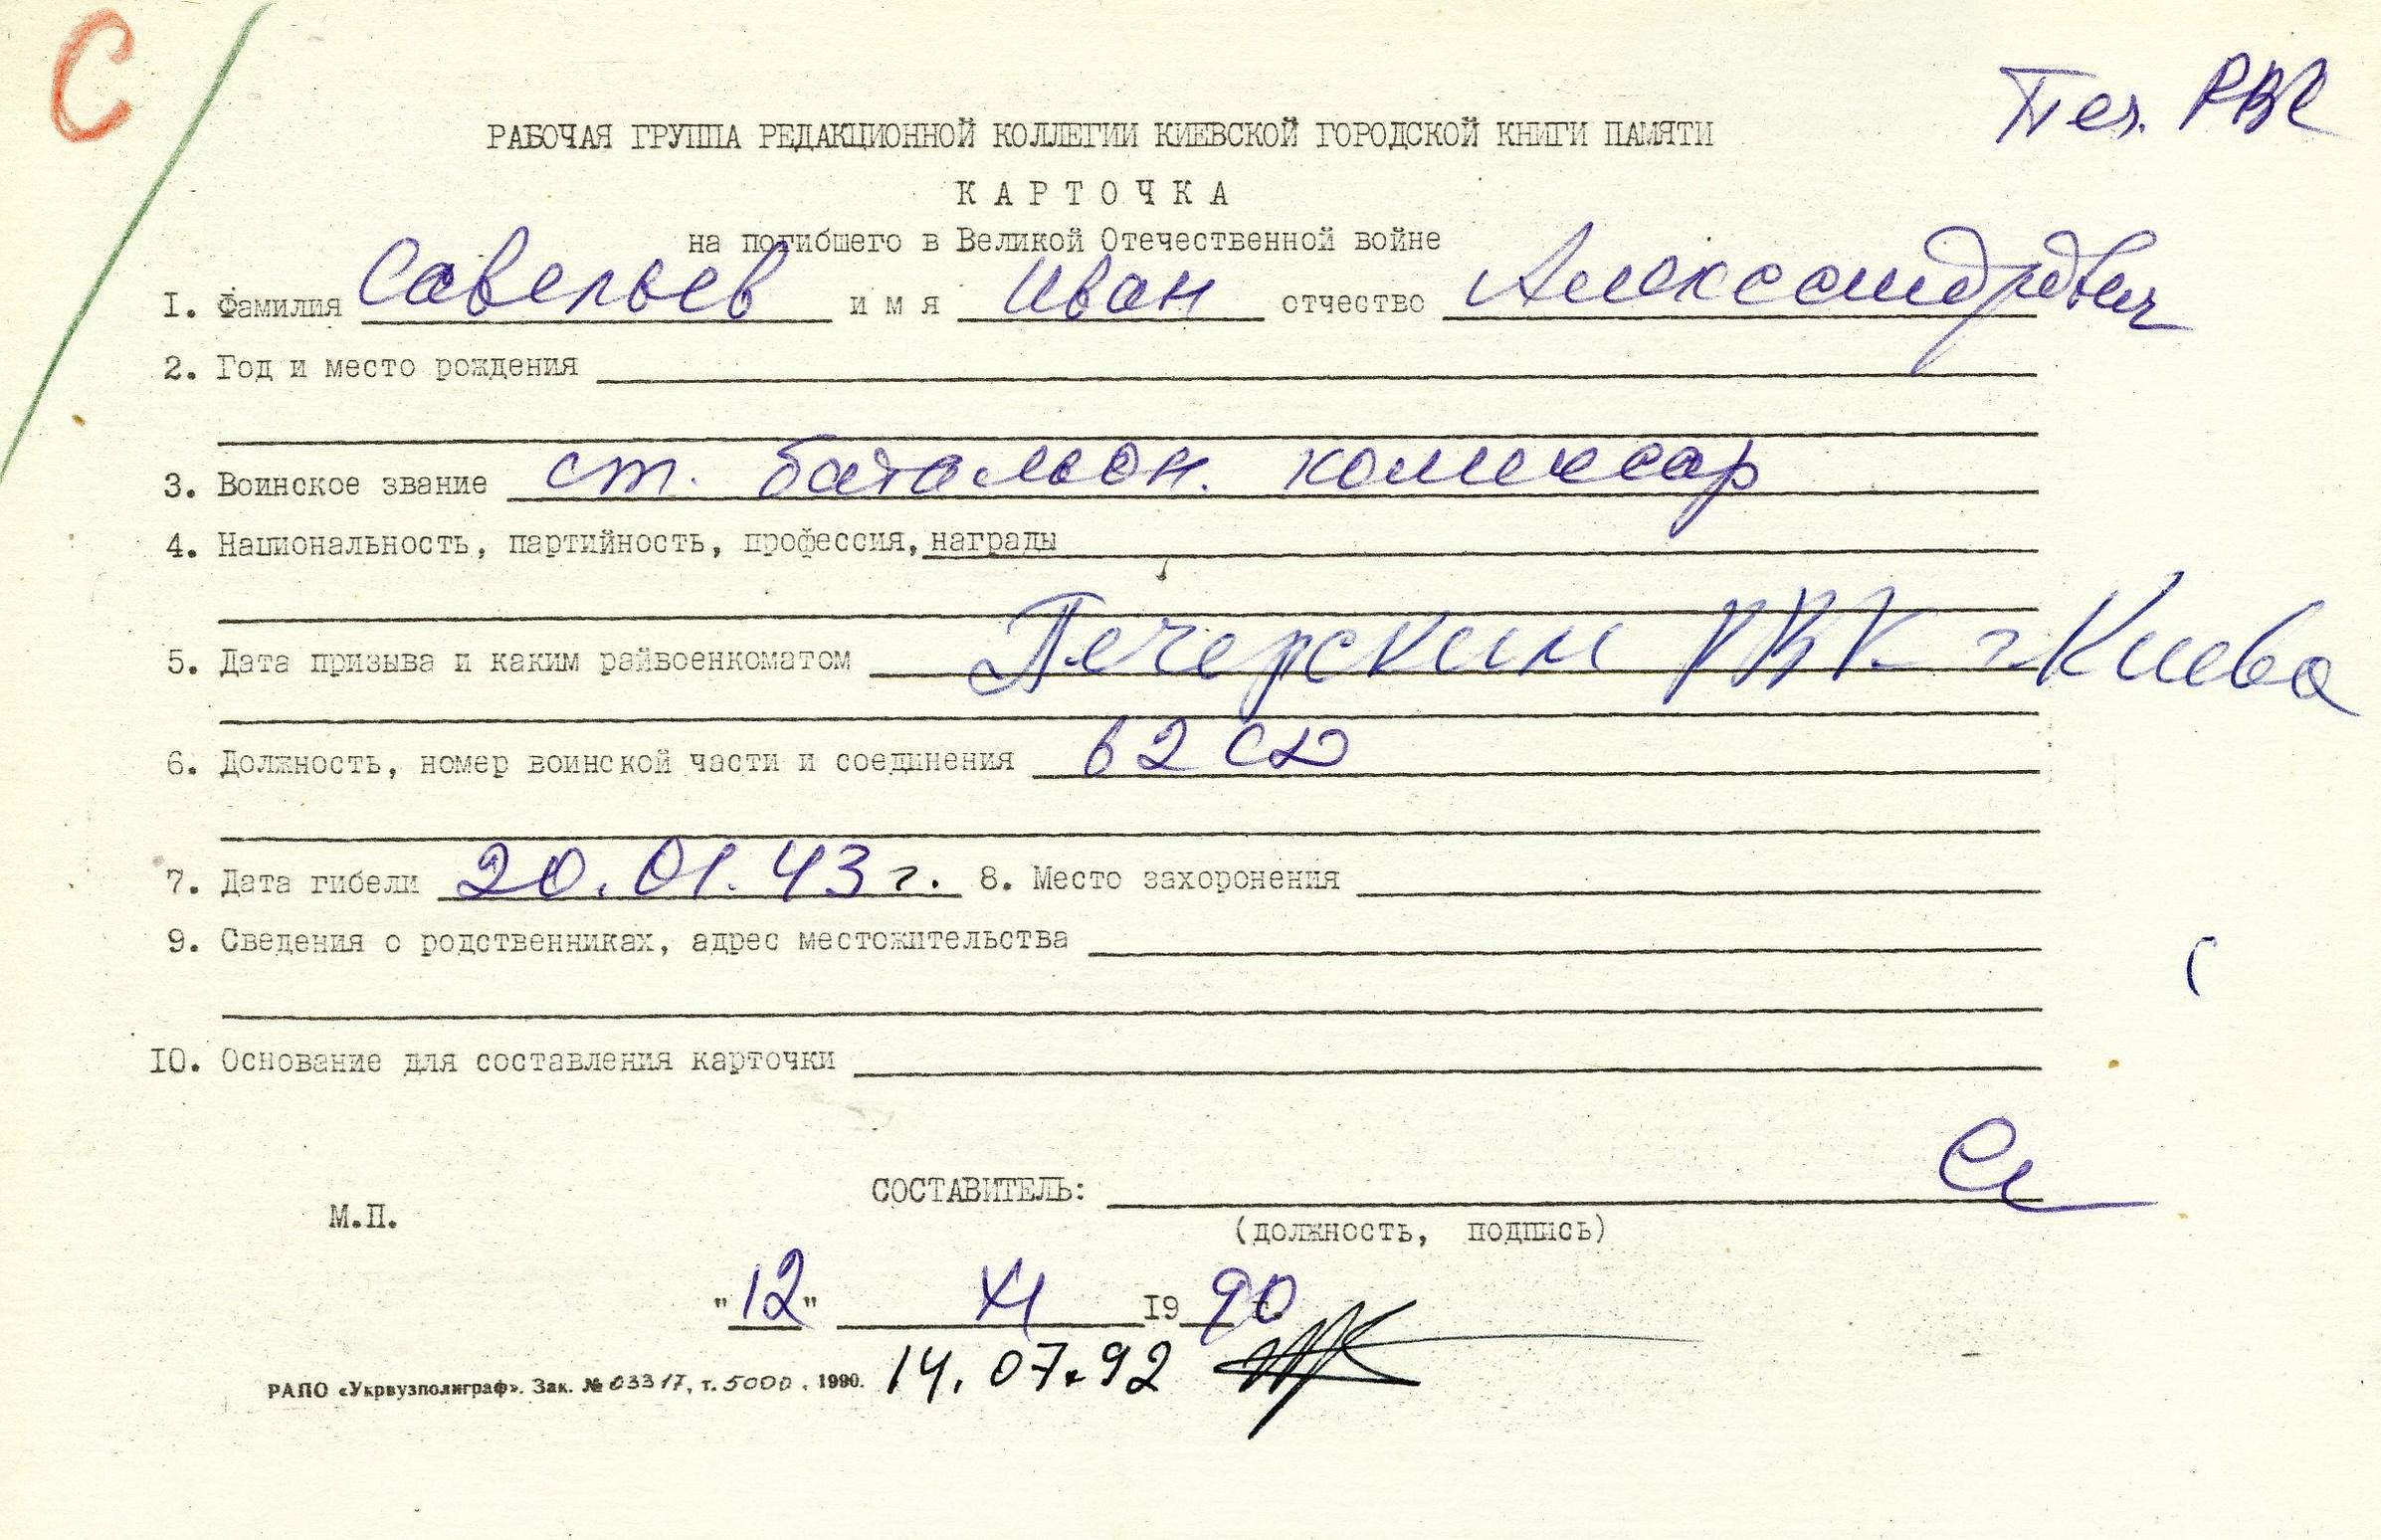 С
Печ. РВК
РАБОЧАЯ ГРУППА РЕДАКЦИОННОЙ КОЛЛЕГИИ КИЕВСКОЙ ГОРОДСКОЙ КНИГИ ПАМЯТИ
КАРТОЧКА
на погибшего в Великой Отечественной войне
I. Фамилия Савельев имя Иван отчество Александрович
2. Год и место рождения
3. Воинское звание ст. батальон. комиссар
4. Национальность, партийность, профессия, награды
5. Дата призыва и каким райвоенкоматом Печерским РВК г. Киева
6. Должность, номер воинской части и соединения 62 СД
7. Дата гибели 20.01.43 г. 8. Место захоронения
9. Сведения о родственниках, адрес местожительства
IO. Основание для составления карточки
СОСТАВИТЕЛЬ:
М.П.
(должность, подпись)
"12" XI I9 90
РАПО «Укрвузполиграф». Зак. № 03317, т. 5000 . 1990. 14.07.92